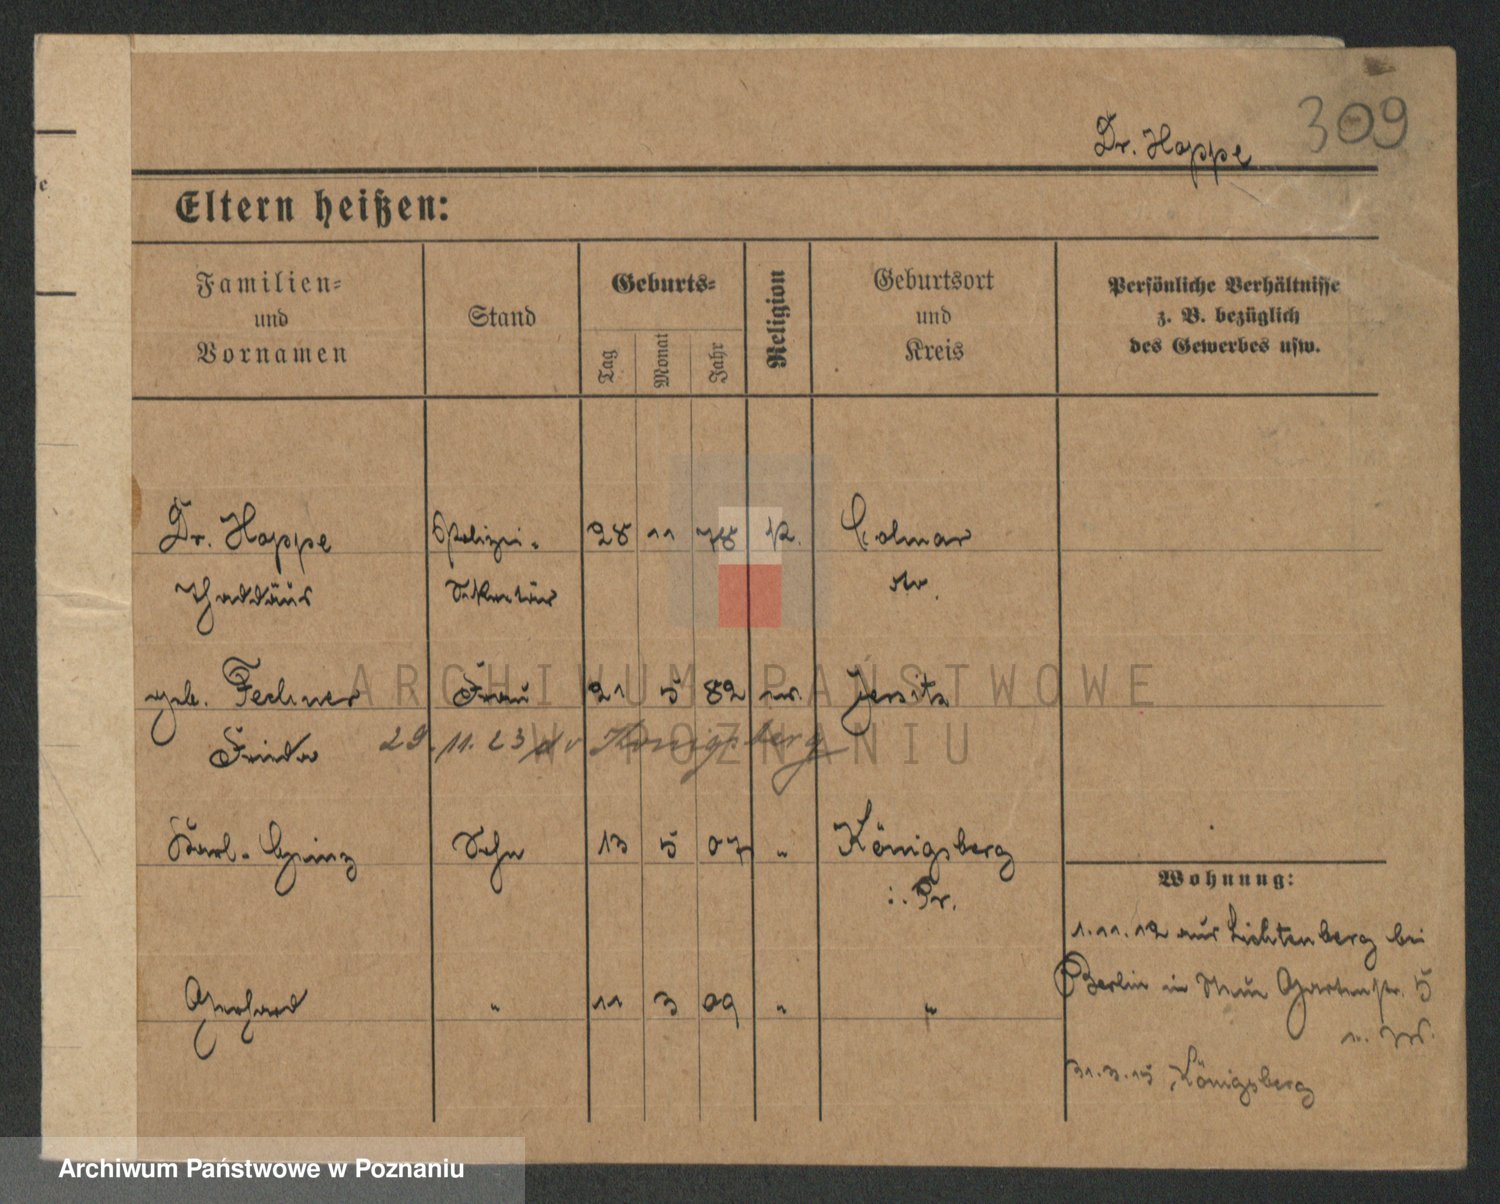 309
Dr. Hoppe
Eltern heißen:
Familien- und Vornamen
Stand
Geburts-
Tag
Monat
Jahr
Religion
Geburtsort und Kreis
Persönliche Verhältnisse
z. B. bezüglich
des Gewerbes usw.
Dr. Hoppe Polizei- 28 11 78 k. Colmar
Thaddäus Sekretär
geb. Fechner Frau 21 5 82 ev. Jersitz
Frieda 29.11.23 Königsberg
Karl-Heinz Sohn 13 5 07 " Königsberg
i. Pr.
Gerhard " 11 3 09 " "
Wohnung:
1.11.12 aus Lichtenberg bei
Berlin in Gartenstr. 5
31.3.15 Königsberg
ARCHIWUM PAŃSTWOWE
W POZNANIU
Archiwum Państwowe w Poznaniu